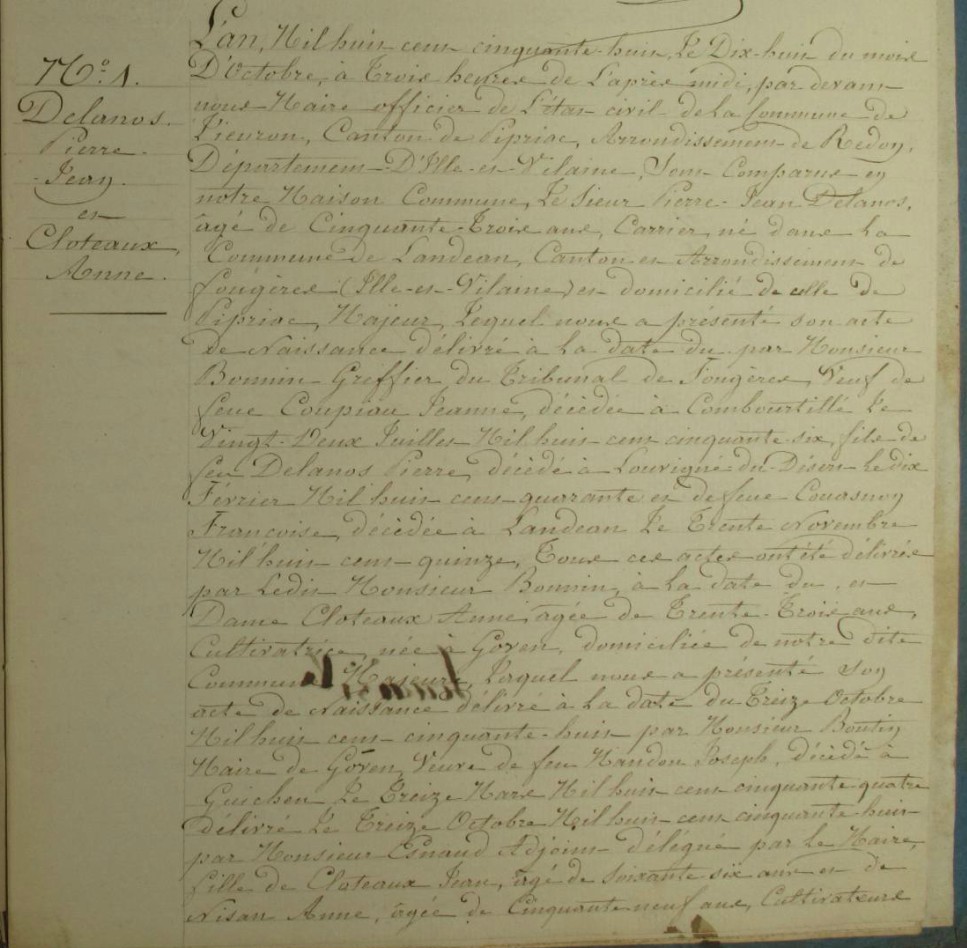 N.° 1.
Delanos.
Pierre.
Jean.
et
Cloteaux
Anne.
L'an, Mil huit cent cinquante-huit, Le Dix-huit du mois
D'Octobre, à Trois heures de L'après midi, par devant
nous Maire officier de L'état civil de La Commune de
Lieuron, Canton de Pipriac, Arrondissement de Redon,
Département D'Ille-et-Vilaine, Sont Comparus en
notre Maison Commune, Le Sieur Pierre-Jean Delanos,
âgé de Cinquante-Trois ans, Carrier, né dans La
Commune de Landean, Canton et Arrondissement de
fougères (Ille-et-Vilaine) et domicilié de celle de
Pipriac, Majeur, Lequel nous a présenté son acte
de Naissance délivré à La date du par Monsieur
Bonnin Greffier du Tribunal de Fougères, Veuf de
feue Coupiau Jeanne, décédée à Combourtillé Le
Vingt-Deux Juillet Mil huit cent cinquante-six, fils de
feu Delanos Pierre, décédé à Louvigné-du-Désert Le dix
Février Mil huit cent quarante et de feue Couasnon
Francoise, décédée à Landean Le Trente Novembre
Mil huit cent quinze, Tous ces actes ont été délivrés
par Ledit Monsieur Bonnin, à La date du. et
Dame Cloteaux Anne, âgée de Trente-Trois ans,
Cultivatrice, née à Goven, domiciliée de notre dite
Commune Majeure, Laquel nous a présenté Son
acte de Naissance délivré à La date du Treize Octobre
Mil huit cent cinquante-huit par Monsieur Boutin
Maire de Goven, Veuve de feu Mandon Joseph, décédé à
Guichen Le Treize Mars Mil huit cent cinquante-quatre
délivré Le Treize Octobre Mil huit cent cinquante huit
par Monsieur Esnaud Adjoint délégué par Le Maire,
fille de Cloteaux Jean, âgé de Soixante six ans et de
Nisan Anne, âgée de Cinquante neuf ans, Cultivateurs